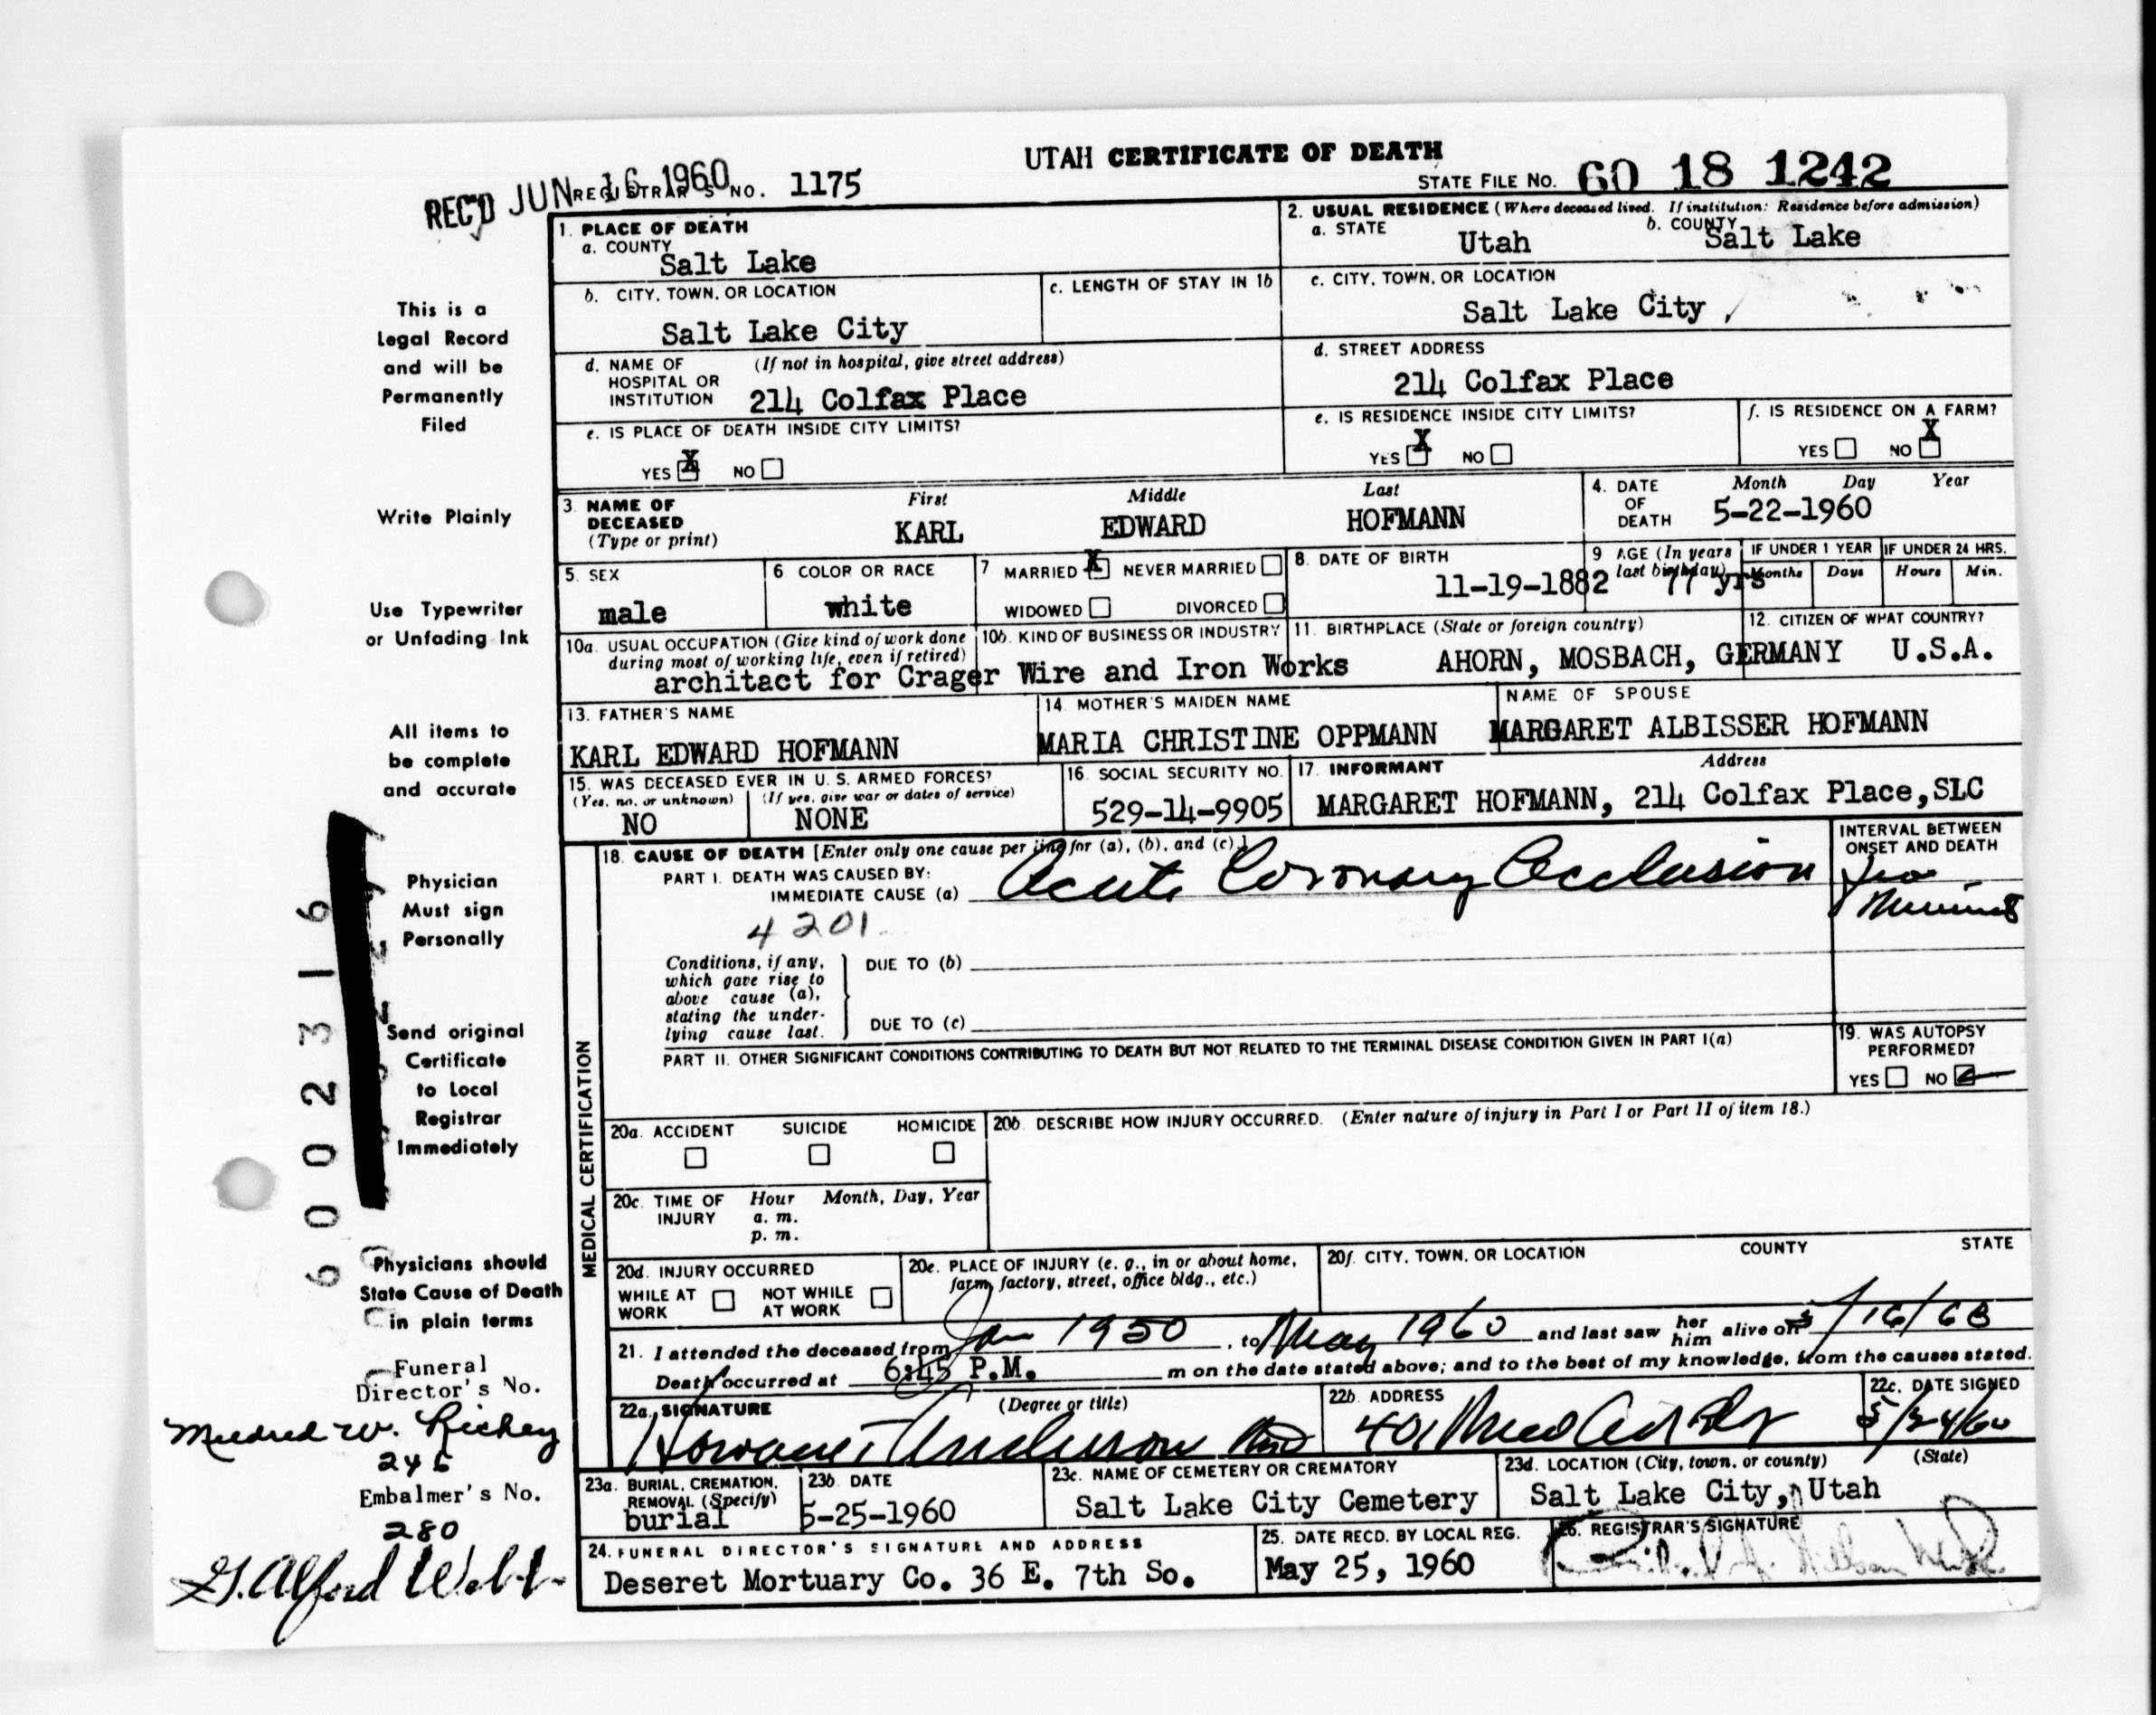 UTAH CERTIFICATE OF DEATH
REC'D JUN 16 1960
REGISTRAR'S NO. 1175
STATE FILE NO. 60 18 1242
1. PLACE OF DEATH
a. COUNTY
Salt Lake
2. USUAL RESIDENCE (Where deceased lived. If institution: Residence before admission)
a. STATE Utah b. COUNTY Salt Lake
b. CITY, TOWN, OR LOCATION
Salt Lake City
c. LENGTH OF STAY IN 1b
c. CITY, TOWN, OR LOCATION
Salt Lake City
d. NAME OF HOSPITAL OR INSTITUTION (If not in hospital, give street address)
214 Colfax Place
d. STREET ADDRESS
214 Colfax Place
e. IS PLACE OF DEATH INSIDE CITY LIMITS?
YES X NO
e. IS RESIDENCE INSIDE CITY LIMITS?
YES X NO
f. IS RESIDENCE ON A FARM?
YES NO X
3. NAME OF DECEASED (Type or print)
First Middle Last
KARL EDWARD HOFMANN
4. DATE OF DEATH Month Day Year
5-22-1960
5. SEX
male
6. COLOR OR RACE
white
7. MARRIED X NEVER MARRIED
WIDOWED DIVORCED
8. DATE OF BIRTH
11-19-1882
9. AGE (In years last birthday)
77 yrs
IF UNDER 1 YEAR IF UNDER 24 HRS.
Months Days Hours Min.
10a. USUAL OCCUPATION (Give kind of work done during most of working life, even if retired)
10b. KIND OF BUSINESS OR INDUSTRY
architact for Crager Wire and Iron Works
11. BIRTHPLACE (State or foreign country)
AHORN, MOSBACH, GERMANY
12. CITIZEN OF WHAT COUNTRY?
U.S.A.
13. FATHER'S NAME
KARL EDWARD HOFMANN
14. MOTHER'S MAIDEN NAME
MARIA CHRISTINE OPPMANN
NAME OF SPOUSE
MARGARET ALBISSER HOFMANN
15. WAS DECEASED EVER IN U. S. ARMED FORCES?
(Yes, no, or unknown) (If yes, give war or dates of service)
NO NONE
16. SOCIAL SECURITY NO.
529-14-9905
17. INFORMANT Address
MARGARET HOFMANN, 214 Colfax Place, SLC
MEDICAL CERTIFICATION
18. CAUSE OF DEATH [Enter only one cause per line for (a), (b), and (c).]
PART I. DEATH WAS CAUSED BY:
IMMEDIATE CAUSE (a) Acute Coronary Occlusion
4201
INTERVAL BETWEEN ONSET AND DEATH
Conditions, if any, which gave rise to above cause (a), stating the underlying cause last.
DUE TO (b)
DUE TO (c)
PART II. OTHER SIGNIFICANT CONDITIONS CONTRIBUTING TO DEATH BUT NOT RELATED TO THE TERMINAL DISEASE CONDITION GIVEN IN PART I(a)
19. WAS AUTOPSY PERFORMED?
YES NO
20a. ACCIDENT SUICIDE HOMICIDE
20b. DESCRIBE HOW INJURY OCCURRED. (Enter nature of injury in Part I or Part II of item 18.)
20c. TIME OF INJURY Hour Month, Day, Year
a. m.
p. m.
20d. INJURY OCCURRED
WHILE AT WORK NOT WHILE AT WORK
20e. PLACE OF INJURY (e. g., in or about home, farm, factory, street, office bldg., etc.)
20f. CITY, TOWN, OR LOCATION COUNTY STATE
21. I attended the deceased from Jan 1950, to May 1960 and last saw her him alive on 5/16/60
Death occurred at 6:45 P.M. m on the date stated above; and to the best of my knowledge, from the causes stated.
22a. SIGNATURE (Degree or title)
Anderson MD
22b. ADDRESS
401 Med
22c. DATE SIGNED
5/24/60
23a. BURIAL, CREMATION, REMOVAL (Specify)
burial
23b. DATE
5-25-1960
23c. NAME OF CEMETERY OR CREMATORY
Salt Lake City Cemetery
23d. LOCATION (City, town, or county) (State)
Salt Lake City, Utah
24. FUNERAL DIRECTOR'S SIGNATURE AND ADDRESS
Deseret Mortuary Co. 36 E. 7th So.
25. DATE RECD. BY LOCAL REG.
May 25, 1960
26. REGISTRAR'S SIGNATURE
This is a
Legal Record
and will be
Permanently
Filed
Write Plainly
Use Typewriter
or Unfading Ink
All items to
be complete
and accurate
Physician
Must sign
Personally
Send original
Certificate
to Local
Registrar
Immediately
Physicians should
State Cause of Death
in plain terms
Funeral
Director's No.
Mildred W. Richey
246
Embalmer's No.
280
G. Alford Webb
6002316